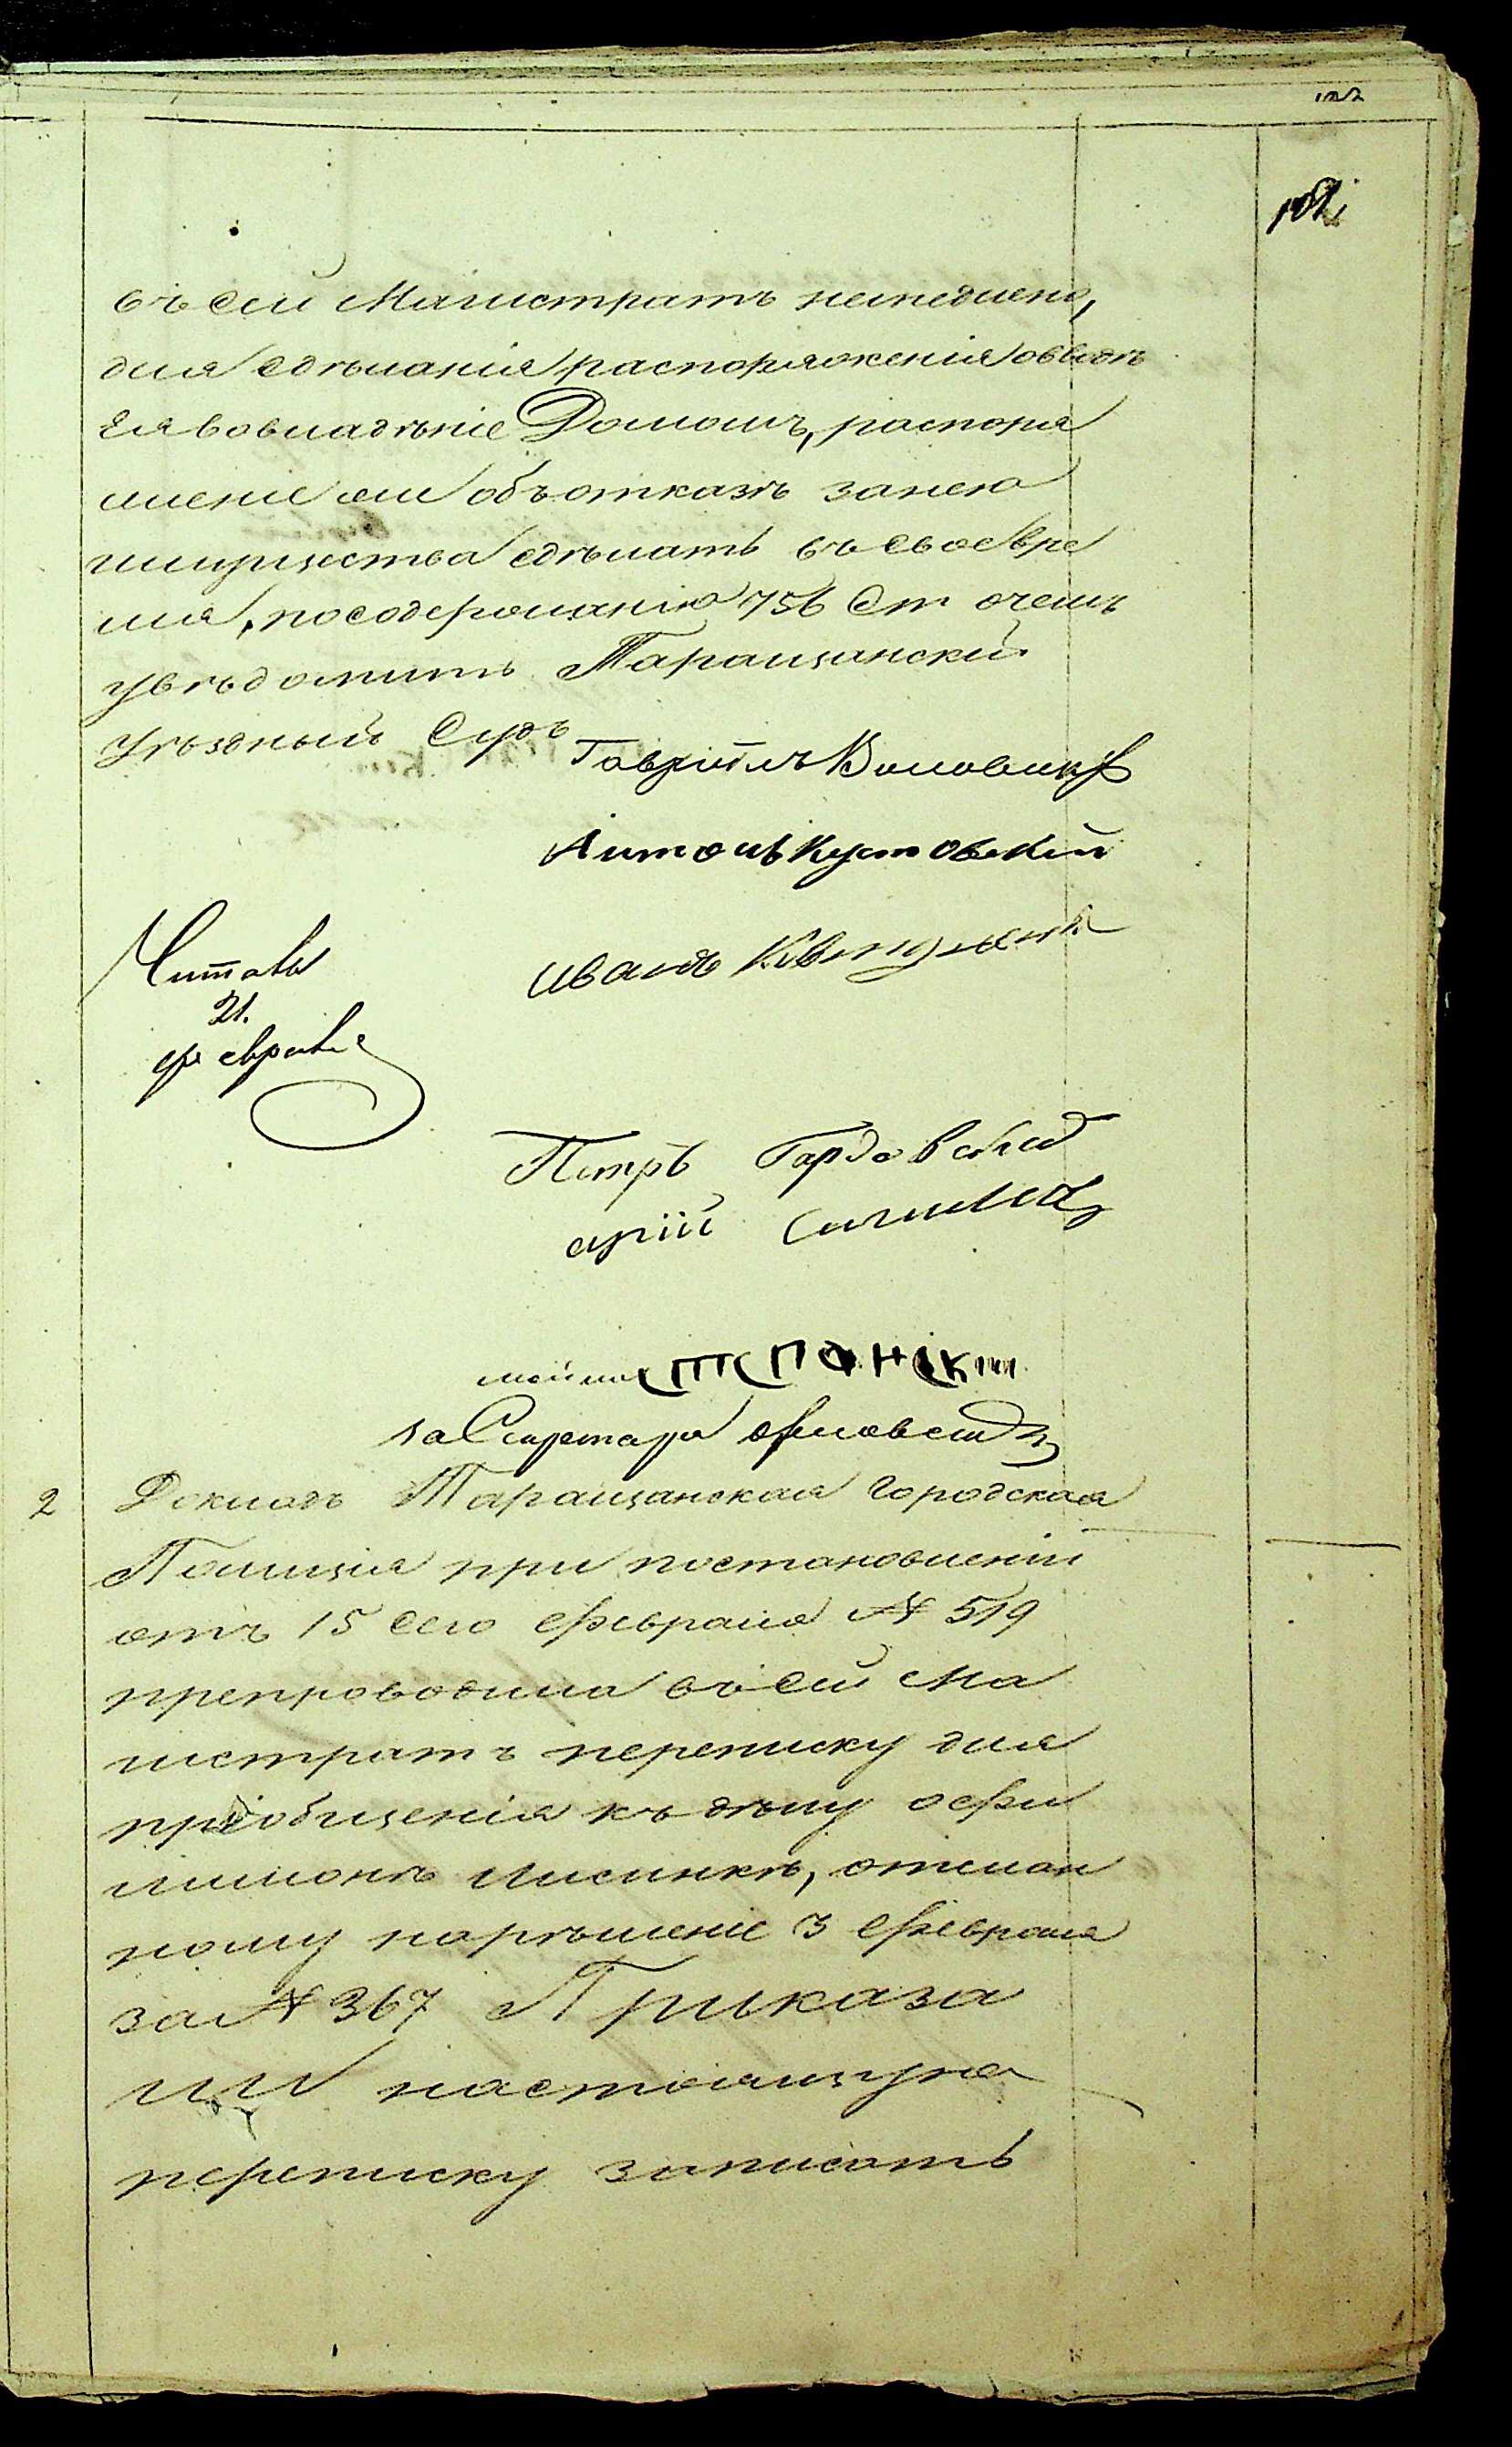 122
въ Сей Магистратъ немедлено,
для сдѣланія распоряженія овводѣ
Ея вовладѣніе Домомъ, распоря
жение объотказѣ занею
имущества сдѣлать въ Свое вре
мя, посодержанію 756 Ст очемъ
увѣдомить Таращанскій
Уѣздный Судъ
Гавріилъ
Антонъ Кустовскій
Читалъ
Иванъ
21.
февраля
Петръ
за Секретаря
2 Докладъ Таращанская Городская
Полиція при постановленіи
отъ 15 Сего Февраля № 519
препроводила въ Сей Ма
гистратъ переписку для
пріобщенія къ дѣлу о Фи
лимонѣ Лисинкѣ,
ному нарѣшеніе 3 Февраля
за № 367 Приказа
ли настоящую
переписку записать